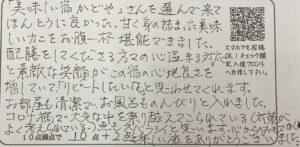 「美味しい宿かどや」さんを選んで来て
ほんとうに良かった。甘く身の詰まった美味
しいカニをお腹一杯堪能できました。
配膳をしてくださる方の心温まる対応
と素敵な笑顔がこの宿の心地良さを
増していて「リピートしたいな」と思わせてくれます。
お部屋も清潔で、お風呂ものんびりと入れました。
コロナ禍で大変な中を乗り越えてこられている(対策が
よく考えられている)点も
と思います。
10点満点で 12点+2点
楽しい旅をありがとうございました
スマホでも投稿
OK!チェック欄
記入後フロント
へお渡し下さい。